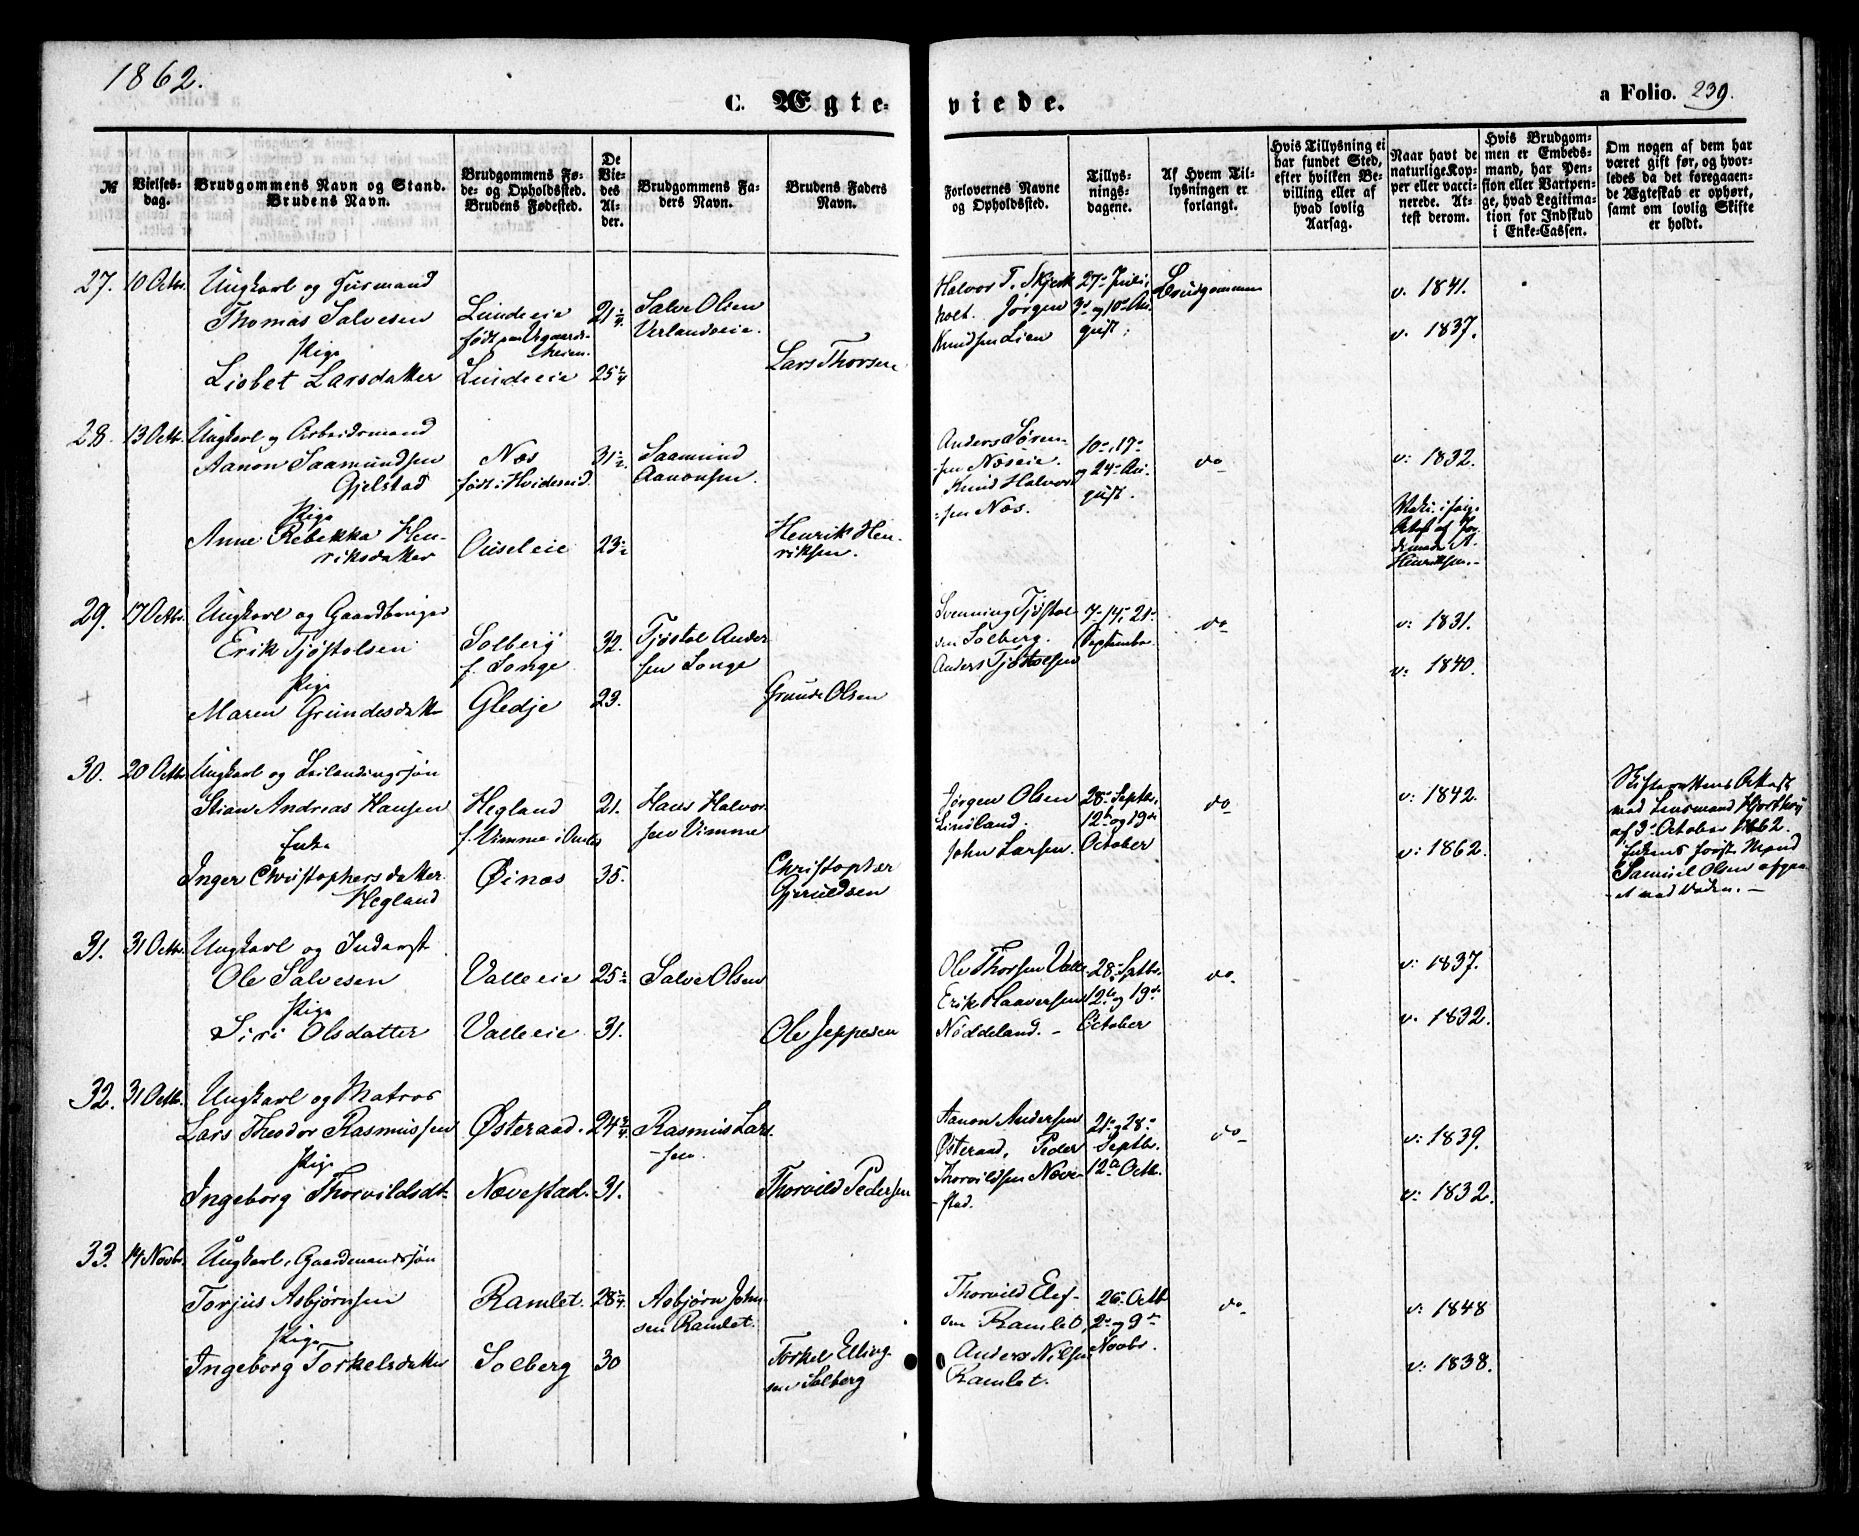 1862.
C. Ægte-
viede.
a Folio. 239.
№
Vielses-
dag.
Brudgommens Navn og Stand.
Brudens Navn.
Brudgommens Fø-
de- og Opholdssted.
Brudens Fødested.
De
Vie-
des
Al-
der.
Brudgommens Fa-
ders Navn.
Brudens Faders
Navn.
Forlovernes Navne
og Opholdssted.
Tillys-
nings-
dagene.
Af Hvem Til-
lysningen er
forlangt.
Hvis Tillysning ei
har fundet Sted,
efter hvilken Be-
villing eller af
hvad lovlig
Aarsag.
Naar havt de
naturlige Kop-
per eller vacci-
nerede. At-
test derom.
Hvis Brudgom-
men er Embeds-
mand, har Pen-
sion eller Vartpen-
ge, hvad Legitima-
tion for Indskud
i Enke-Cassen.
Om nogen af dem har
været gift før, og hvor-
ledes da det foregaaen-
de Ægteskab er ophørt,
samt om lovlig Skifte
er holdt.
27. 10 Octbr.
Ungkarl og Husmand
Thomas Salvesen
Pige
Lisbet Larsdatter
Lundeeie
født paa
heien.
Lundeeie
21 2/4
25 2/4
Salve Olsen
Verlandseie.
Lars Thorsen
Halvor T. Skjerk
holt. Jørgen
Knudsen Lien
27de Juli,
3die og 10de Au-
gust.
Brudgommen
v. 1841.
v. 1837.
28. 13 Octbr.
Ungkarl og Arbeidsmand
Aanon Saamundsen
Gjelstad
Pige
Anne Rebekka Hen-
riksdatter
Næs
født i Hvideseid.
Ouseleie
31 1/2
23 1/2
Saamund
Aanonsen.
Henrik Hen-
riksen.
Anders Søren-
sen Næseie.
Knud Halvor
sen Næs.
10de, 17de
og 24de Au-
gust.
do
v: 1832.
Attest af Jor-
demoder A.
Henriksen.
29. 17 Octbr.
Ungkarl og Gaardbruger
Erik Tjøstolsen
Pige
Maren Grundesdatter
Solberg
f. Songe
Gledje
32.
23.
Tjøstol Ander
sen Songe
Grunde Olsen
Svenning Tjøstol
sen Solberg.
Anders Tjøstolsen
7de 14de 21de
September
do
v: 1831.
v: 1840.
30. 20 Octbr.
Ungkarl og Leilændingssøn
Stian Andreas Hansen
Enke
Inger Christophersdatter
Hegland
Hegland
f. Vimme i
Øinæs
21.
35.
Hans Halvor
sen Vimme
Christopher
Gjeruldsen
Jørgen Olsen
Lindland.
John Larsen.
28de Septbr.
12te og 19de
October
do
v: 1842.
v: 1862.
Skifterettens Attest
ved Lensmand
af 3die October 1862.
Enkens første Mand
Samuel Olsen afgaa-
et ved Døden.
31. 31 Octbr.
Ungkarl og Inderst
Ole Salvesen
Pige
Siri Olsdatter
Valleeie
Valleeie
25 1/2
31.
Salve Olsen
Ole Jeppesen
Ole Thorsen Valle
Erik Haaversen
Nøddeland.
28de Septbr.
12te og 19de
October
do
v: 1837.
v. 1832.
32. 31 Octbr.
Ungkarl og Matros
Lars Theodor Rasmussen
Pige
Ingeborg Thorvildsdt.
Østeraad.
Nævestad.
24 2/4
31.
Rasmus Lar-
sen.
Thorvild Pedersen
Aanon Andersen
Østeraad, Peder
Thorvildsen Næve-
stad.
21de og 28de
Septbr.
12te Octbr.
do
v: 1839.
v: 1832.
33. 14 Novbr.
Ungkarl, Gaardmandssøn
Torjus Asbjørnsen
Pige
Ingeborg Torkelsdatter
Ramlet.
Solberg
28 2/4
30
Asbjørn John-
sen Ramlet.
Torkel Elling-
sen Solberg
Thorvild Elef-
sen Ramlet,
Anders Nilsen
Ramlet.
26de Octbr
2den og 9de
Novbr.
do
v: 1848
v: 1838.